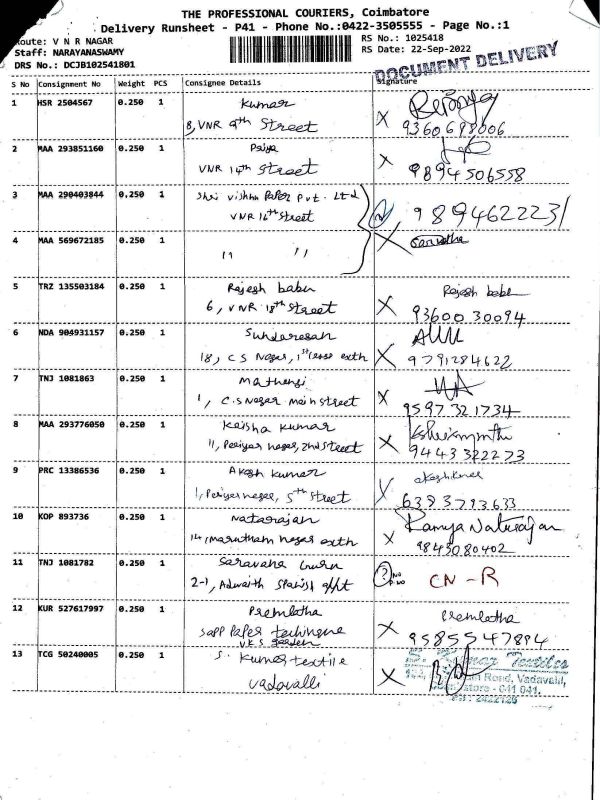 THE PROFESSIONAL COURIERS, Coimbatore
Delivery Runsheet - P41 - Phone No.:0422-3505555 - Page No.:1
Route: V N R NAGAR
RS No.: 1025418
Staff: NARAYANASWAMY
RS Date: 22-Sep-2022
DRS No.: DCJB102541801
DOCUMENT DELIVERY
S No Consignment No Weight PCS Consignee Details Signature
1 HSR 2504567 0.250 1 Kumar
8, VNR 9th Street X 9360698006
2 MAA 293851160 0.250 1 Priya
VNR 14th Street X 9894506558
3 MAA 290403844 0.250 1 Shri Vishnu Paper Pvt. Ltd
VNR 16th Street 9894622231
4 MAA 569672185 0.250 1 " " X
5 TRZ 135503184 0.250 1 Rajesh babu Rajesh babu
6, VNR 18th Street X 93600 30094
6 NDA 904931157 0.250 1 Sundaresan
18, C S Nagar, 1st cross extn X 9791284622
7 TNJ 1081863 0.250 1
1, C.S Nagar main street X 9597321734
8 MAA 293776050 0.250 1 Krisha Kumar
11, Periyar nagar, 2nd street X 9443322273
9 PRC 13386536 0.250 1 Akash Kumar
1, Periyar nagar, 5th street X 6383793633
10 KOP 893736 0.250 1 Natarajan Ramya Natarajan
14, Marutham nagar extn X 9845080402
11 TNJ 1081782 0.250 1 Saravana
2-1, Adwaith CN - R
12 KUR 527617997 0.250 1 Premlatha Premlatha
Sapp Paper
VKS garden X 9585547894
13 TCG 50240005 0.250 1 S. Kumar textile S. Kumar Textiles
Vadavalli X Road, Vadavalli,
Coimbatore - 641 041.